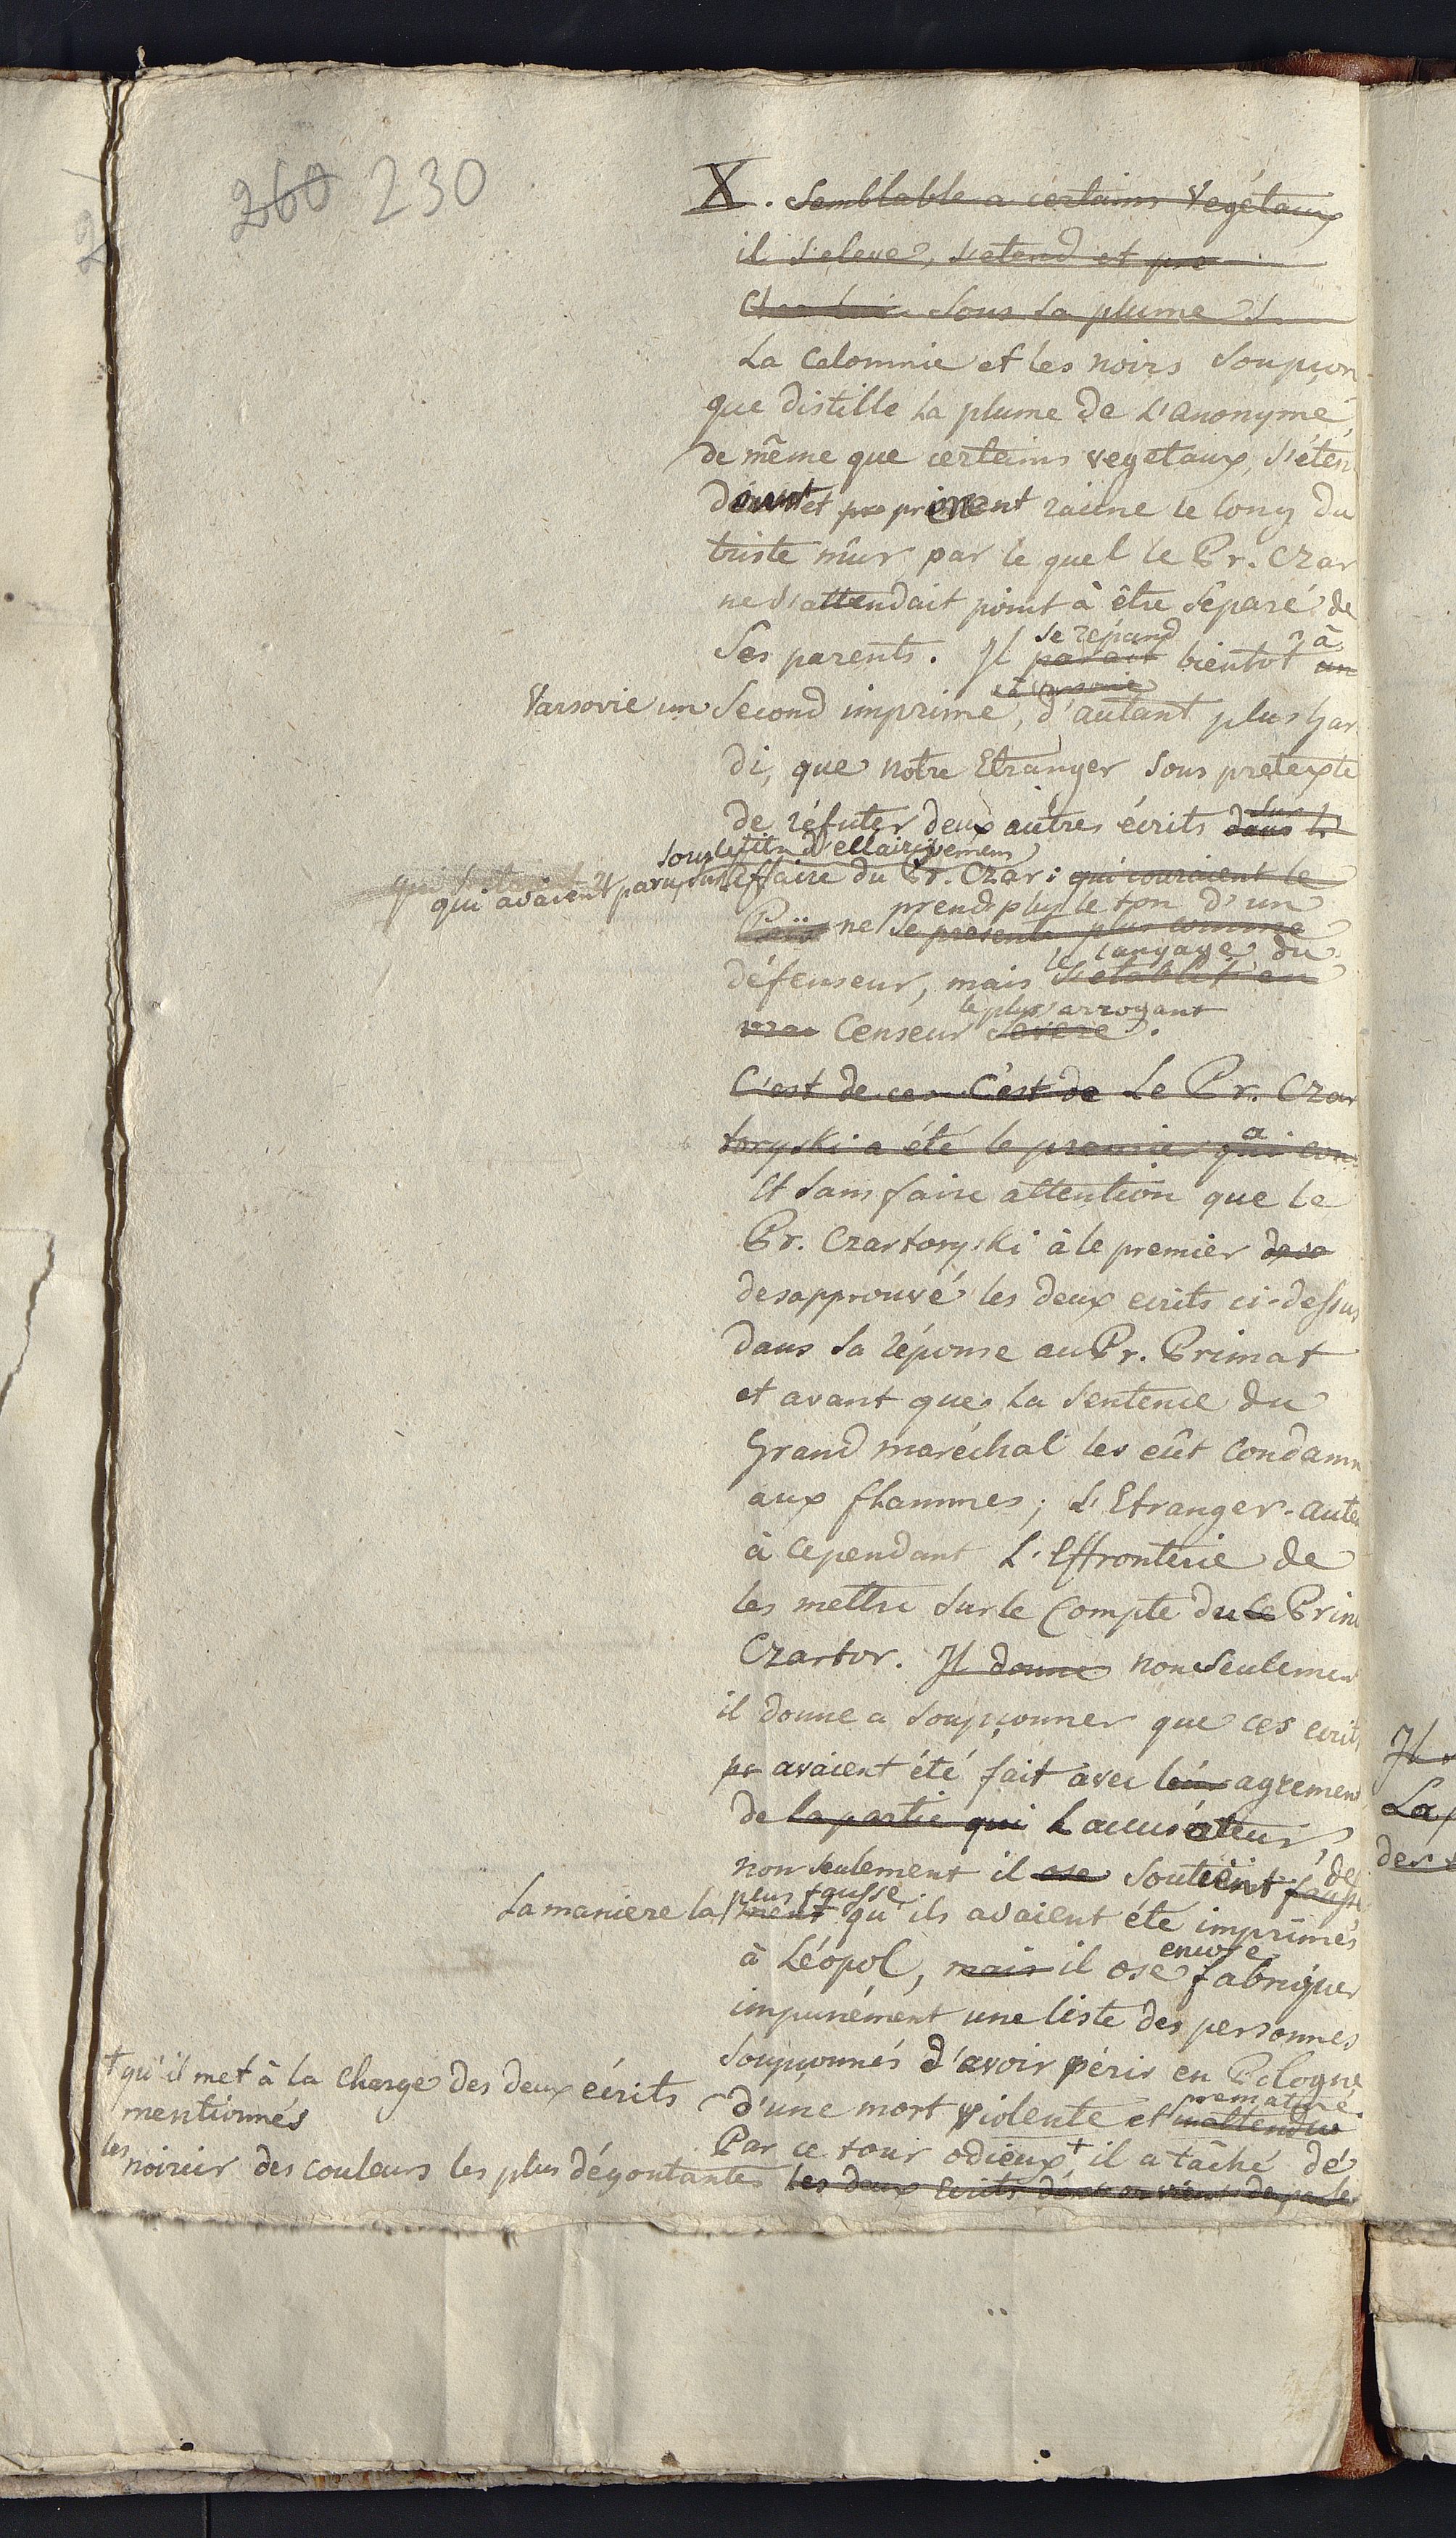 260 230
X. Semblable a certains Vegétaux
il s'eleve, s'etend et pre
sous sa plume
La Calomnie et les noirs soupçon
que distille la plume de L'anonyme,
de même que certains vegetaux, s'éten
dent et pre prennent racine le long du
triste mûr par le quel le Pr. Czar
ne s'attendait point à être séparé de
Ses parents. Il parait se répand bientot à un
Varsovie un Second imprimé, à Varsovie d'autant plus har
di, que notre Etranger sous pretexte
de réfuter deux autres écrits dans sur
qui avaient paru sous le titre d'ellaircissemens
sur L'affaire du Pr. Czar: qui couraient le
Païs ne se presente plus comme prend plus le ton d'un
défenseur, mais s'etablit en le langage du
vrai Censeur sévere le plus arrogant.
C'est de ce C'est de Le Pr. Czar
toryski a été le premier qui a con
Et sans faire attention que le
Pr. Czartoryski à le premier
desapprouvé les deux ecrits ci-dessus
dans sa réponse au Pr. Primat
et avant que la Sentence du
Grand maréchal les eût Condamn
aux flammes; L'Etranger-aute
à Cependant L'Effronterie de
les mettre sur le Compte du le Prin
Czartor. Il donne non seulemen
il donne a soupçonner que ces ecrits
pr avaient été fait avec leur agremen
de la partie qui L'accusateur,
non seulement il ose soutient de
La maniere la plus fausse ment qu'ils avaient été imprimés
à Léopol, mais il ose encore fabriquer
impunément une liste des personnes
soupçonnés d'avoir péris en Pologne
d'une mort violente et inattendue prematuré.
Par ce tour odieux + il a tâché de
+ qu'il met à la Charge des deux écrits
mentionnés
les noircir des couleurs les plus dégoutantes les deux Ecrits dont on vient de parler
Il
La
des